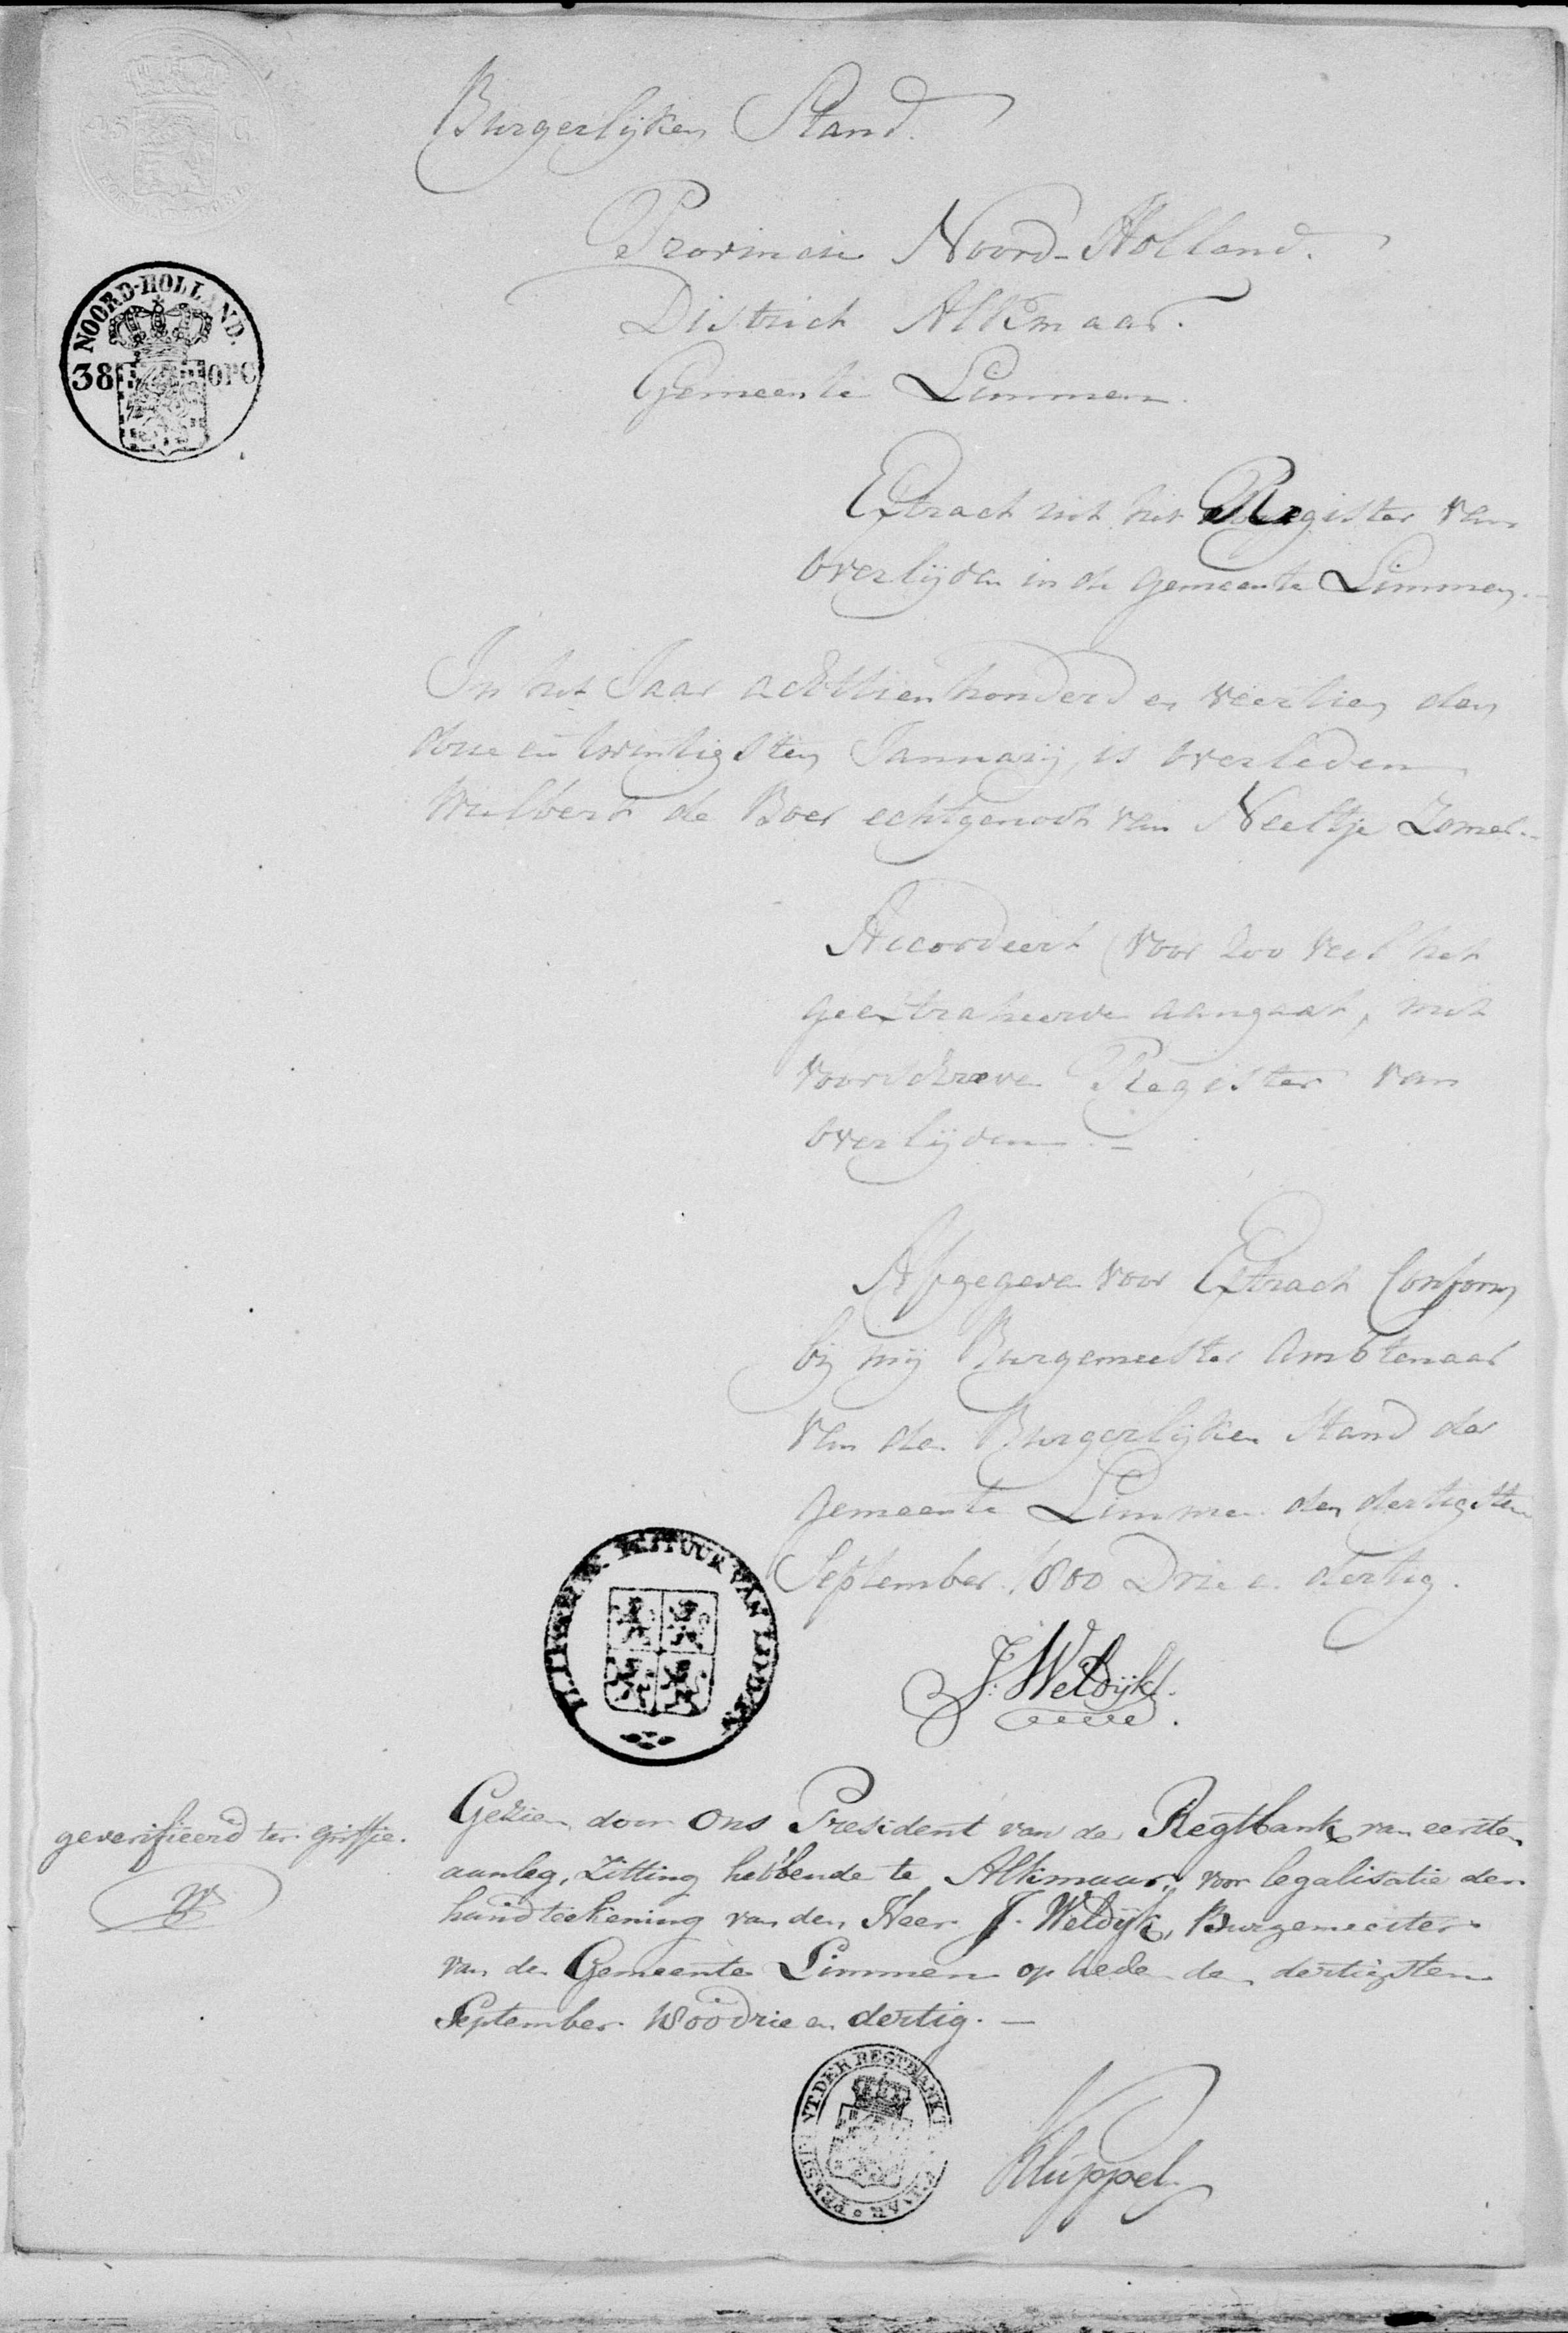 Burgerlijken Stand.
Provincie Noord-Holland.
District Alkmaar.
Gemeente Limmen.
NOORD-HOLLAND.
38 OPC
Extract uit het Register van
overlijden in de gemeente Limmen.-
In het Jaar achttienhonderd en veertien den
drie en twintigsten Januarij, is overleden
Wulbert de Boer echtgenoot van Neeltje Zomer.-
Accordeert (voor zoo veel het
geextraheerde aangaat, met
voorschreve Register van
overlijden.-
Afgegeven voor Extract Conform
bij mij Burgemeester Ambtenaar
van den Burgerlijken Stand der
gemeente Limmen den dertigsten
September 1800 Drie en dertig.
J. Weldijk.
geverifieerd ter griffie.
Gezien door Ons President van de Regtbank van eersten
aanleg, Zitting hebbende te Alkmaar, voor legalisatie der
handteekening van den Heer J. Weldijk, Burgemeester
van de Gemeente Limmen op heden den dertigsten
September 1800 drie en dertig.-
PRESIDENT DER REGTBANK
Kluppel